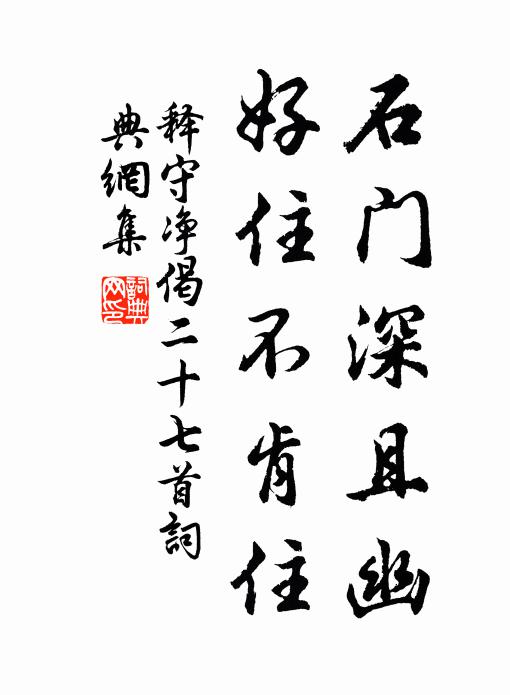 石门深且幽
好住不肯住
释守净偈二十七首詞
典網集
詞典网印